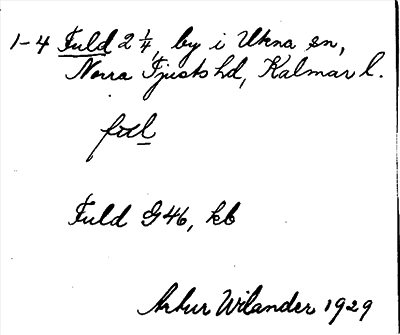 1-4 Fuld 2 ¼, by i Ukna sn,
Norra Tjusts hd, Kalmar l.
full
Fuld G46, kb
Artur Wilander 1929